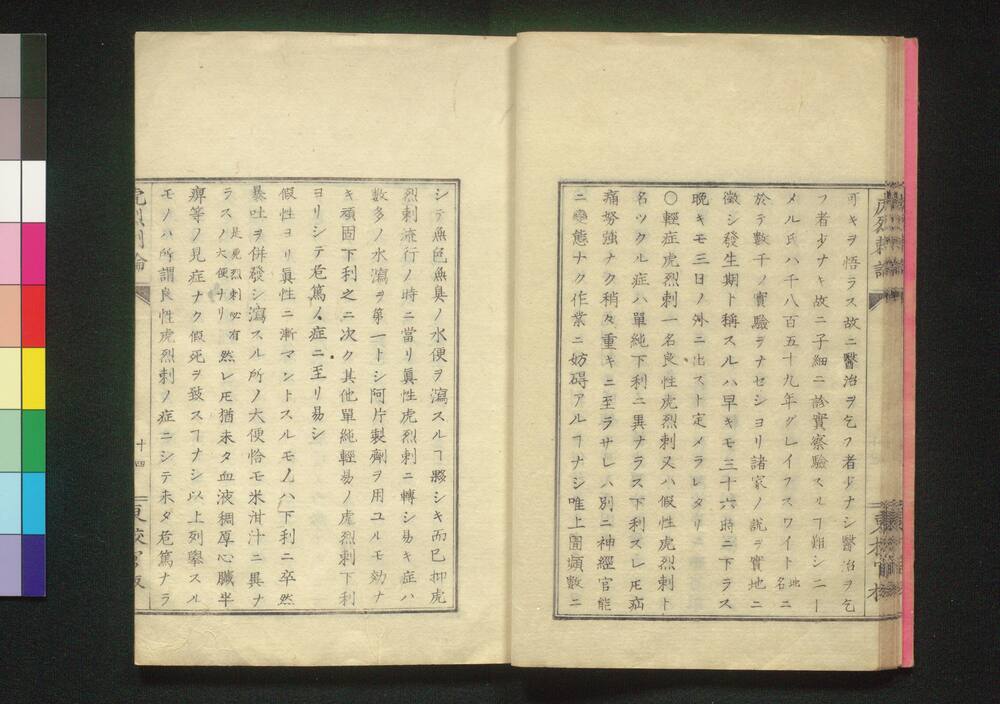 虎烈剌論
東校官板
可キヲ悟ラス故ニ醫治ヲ乞フ者少ナシ醫治ヲ乞
フ者少ナキ故ニ子細ニ診實察驗スルヿ難シニー
メル氏ハ千八百五十九年グレイフスワイト地名ニ
於テ數千ノ實驗ヲナセショリ諸家ノ說ヲ實地ニ
徵シ發生期ト稱スルハ早キモ三十六時ニ下ラス
晩キモ三日ノ外ニ出スト定メラレタリ
〇輕症虎烈剌一名良性虎烈剌又ハ假性虎烈剌ト
名ツクル症ハ單純下利ニ異ナラス下利スレ𪜈疝
痛努強ナク稍々重キニ至ラサレハ別ニ神經官能
ニ變態ナク作業ニ妨碍アルヿナシ唯上圊頻數ニ
シテ魚色無臭ノ水便ヲ瀉スルヿ夥シキ而已抑虎
烈剌流行ノ時ニ當リ眞性虎烈剌ニ轉シ易キ症ハ
數多ノ水瀉ヲ第一トシ阿片製劑ヲ用ユルモ効ナ
キ頑固下利之ニ次ク其他單純輕易ノ虎烈剌下利
ヨリシテ危篤ノ症ニ至リ易シ
假性ヨリ眞性ニ漸マントスルモノハ下利ニ卒然
暴吐ヲ併發シ瀉スル所ノ大便恰モ米泔汁ニ異ナ
ラス是虎烈剌必有ノ大便ナリ然レ𪜈猶未タ血液稠厚心臟半
痺等ノ見症ナク假死ヲ致スヿナシ以上列擧スル
モノハ所謂良性虎烈剌ノ症ニシテ未タ危篤ナラ
虎烈剌論
十四
東校官板